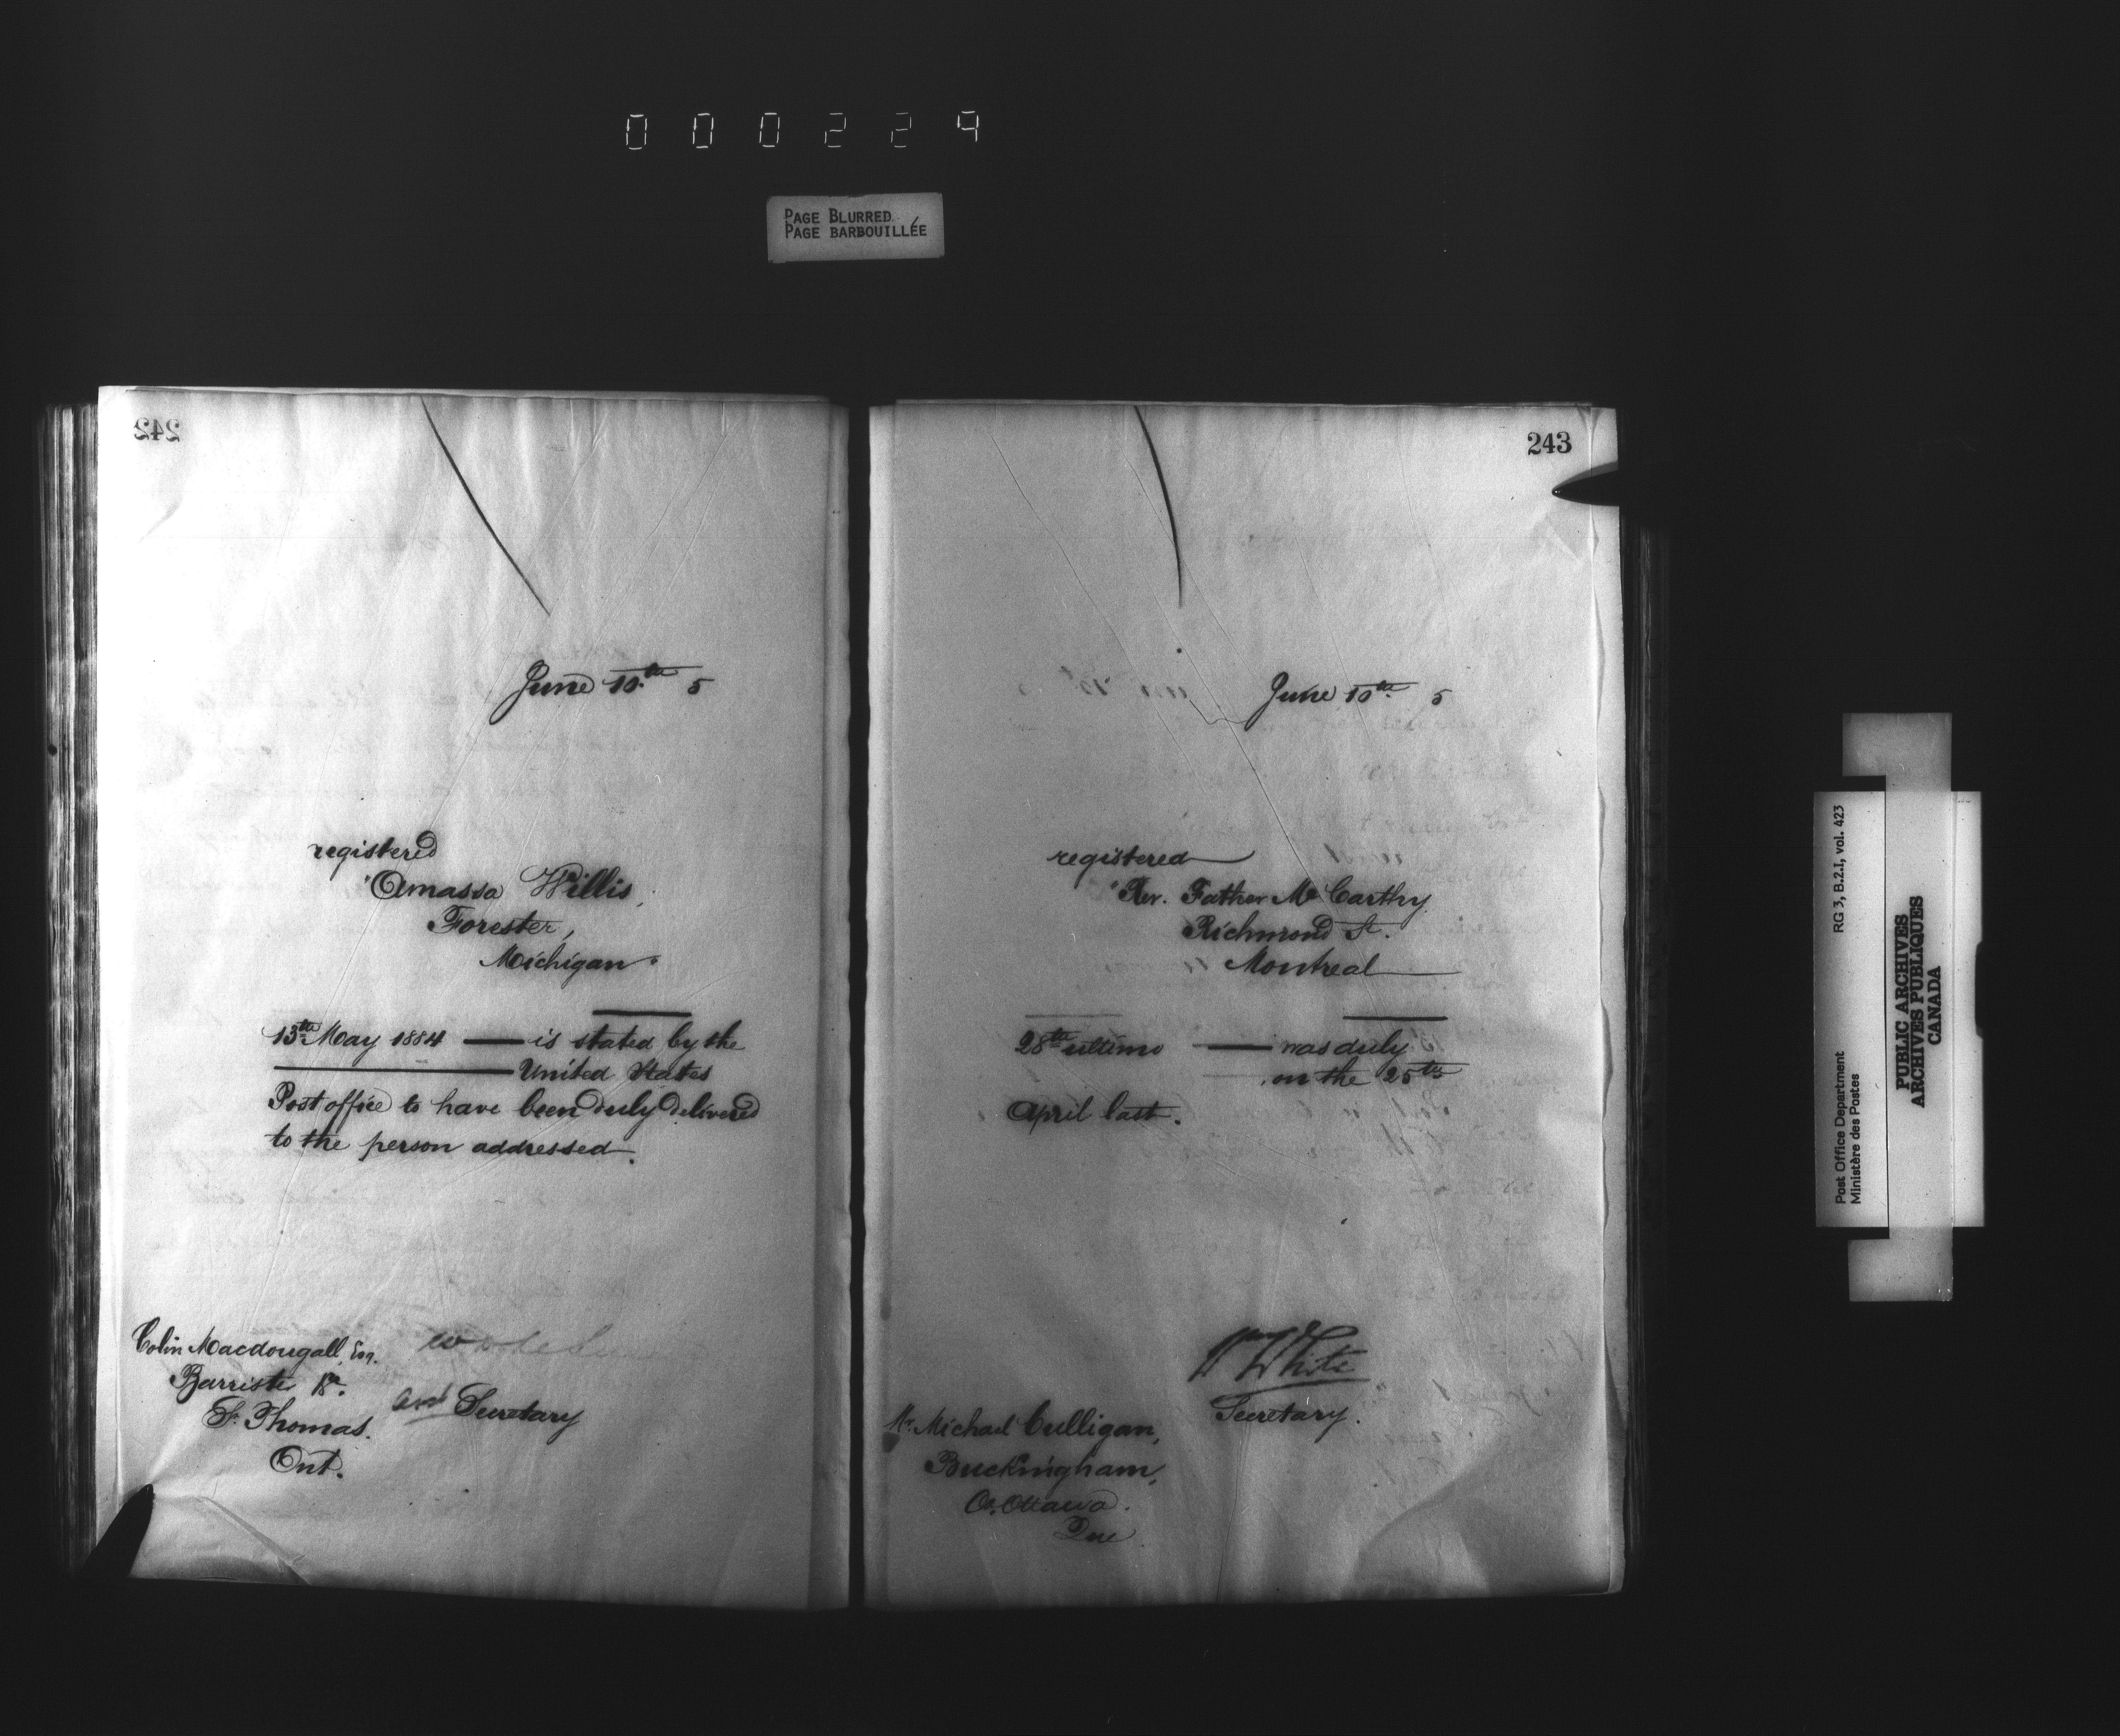 000229
PAGE BLURRED
PAGE BARBOUILLÉE
242
June 10th 5
registered
"Amassa Willis,
Forester,
Michigan"
13th May 1884 — is stated by the
United States
Post office to have been duly delivered
to the person addressed.
Colin Macdougall, Esq.
Barrister &c.
St. Thomas.
Ont.
asst Secretary
243
June 10th 5
registered
"Rev. Father McCarthy
Richmond St.
Montreal
28th ultimo — was duly
on the 25th
April last.
Wm White
Secretary.
Mr. Michael Culligan,
Buckingham,
Co. Ottawa.
Que.
Post Office Department
Ministère des Postes
RG 3, B.2.I, vol. 423
PUBLIC ARCHIVES
ARCHIVES PUBLIQUES
CANADA